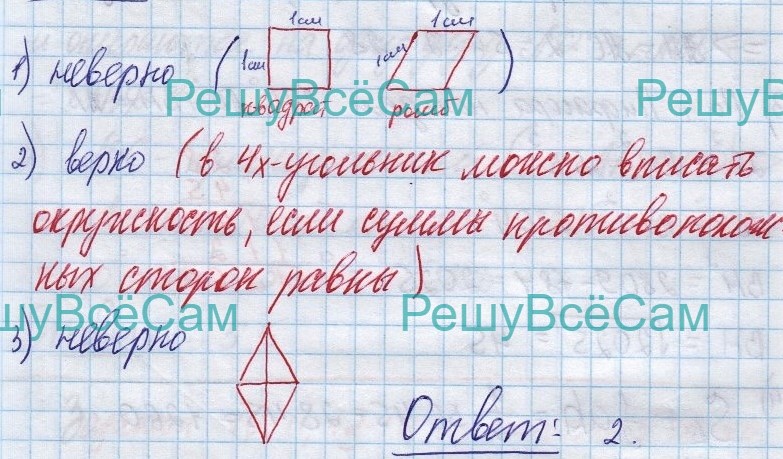 1см 1см
1) неверно ( 1см 1см )
квадрат ромб
РешуВсёСам РешуВсёСам
2) верно (в 4х-угольник можно вписать
окружность, если суммы противополож-
ных сторон равны)
РешуВсёСам РешуВсёСам
3) неверно
Ответ: 2.